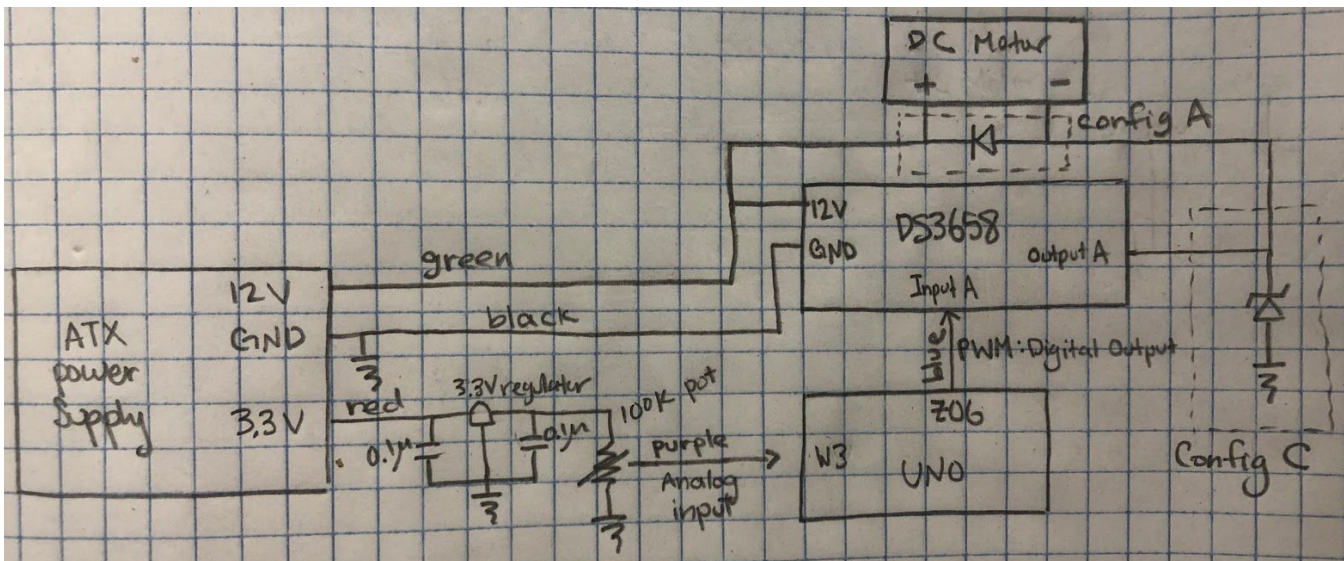 DC Motor
+ -
config A
12V
DS3658
GND
Output A
Input A
green
12V
black
GND
ATX
power
supply
3.3V
red
3.3V regulator
0.1μ
0.1μ
100K pot
purple
Analog
input
blue
PWM: Digital Output
Z06
W3
UNO
Config C